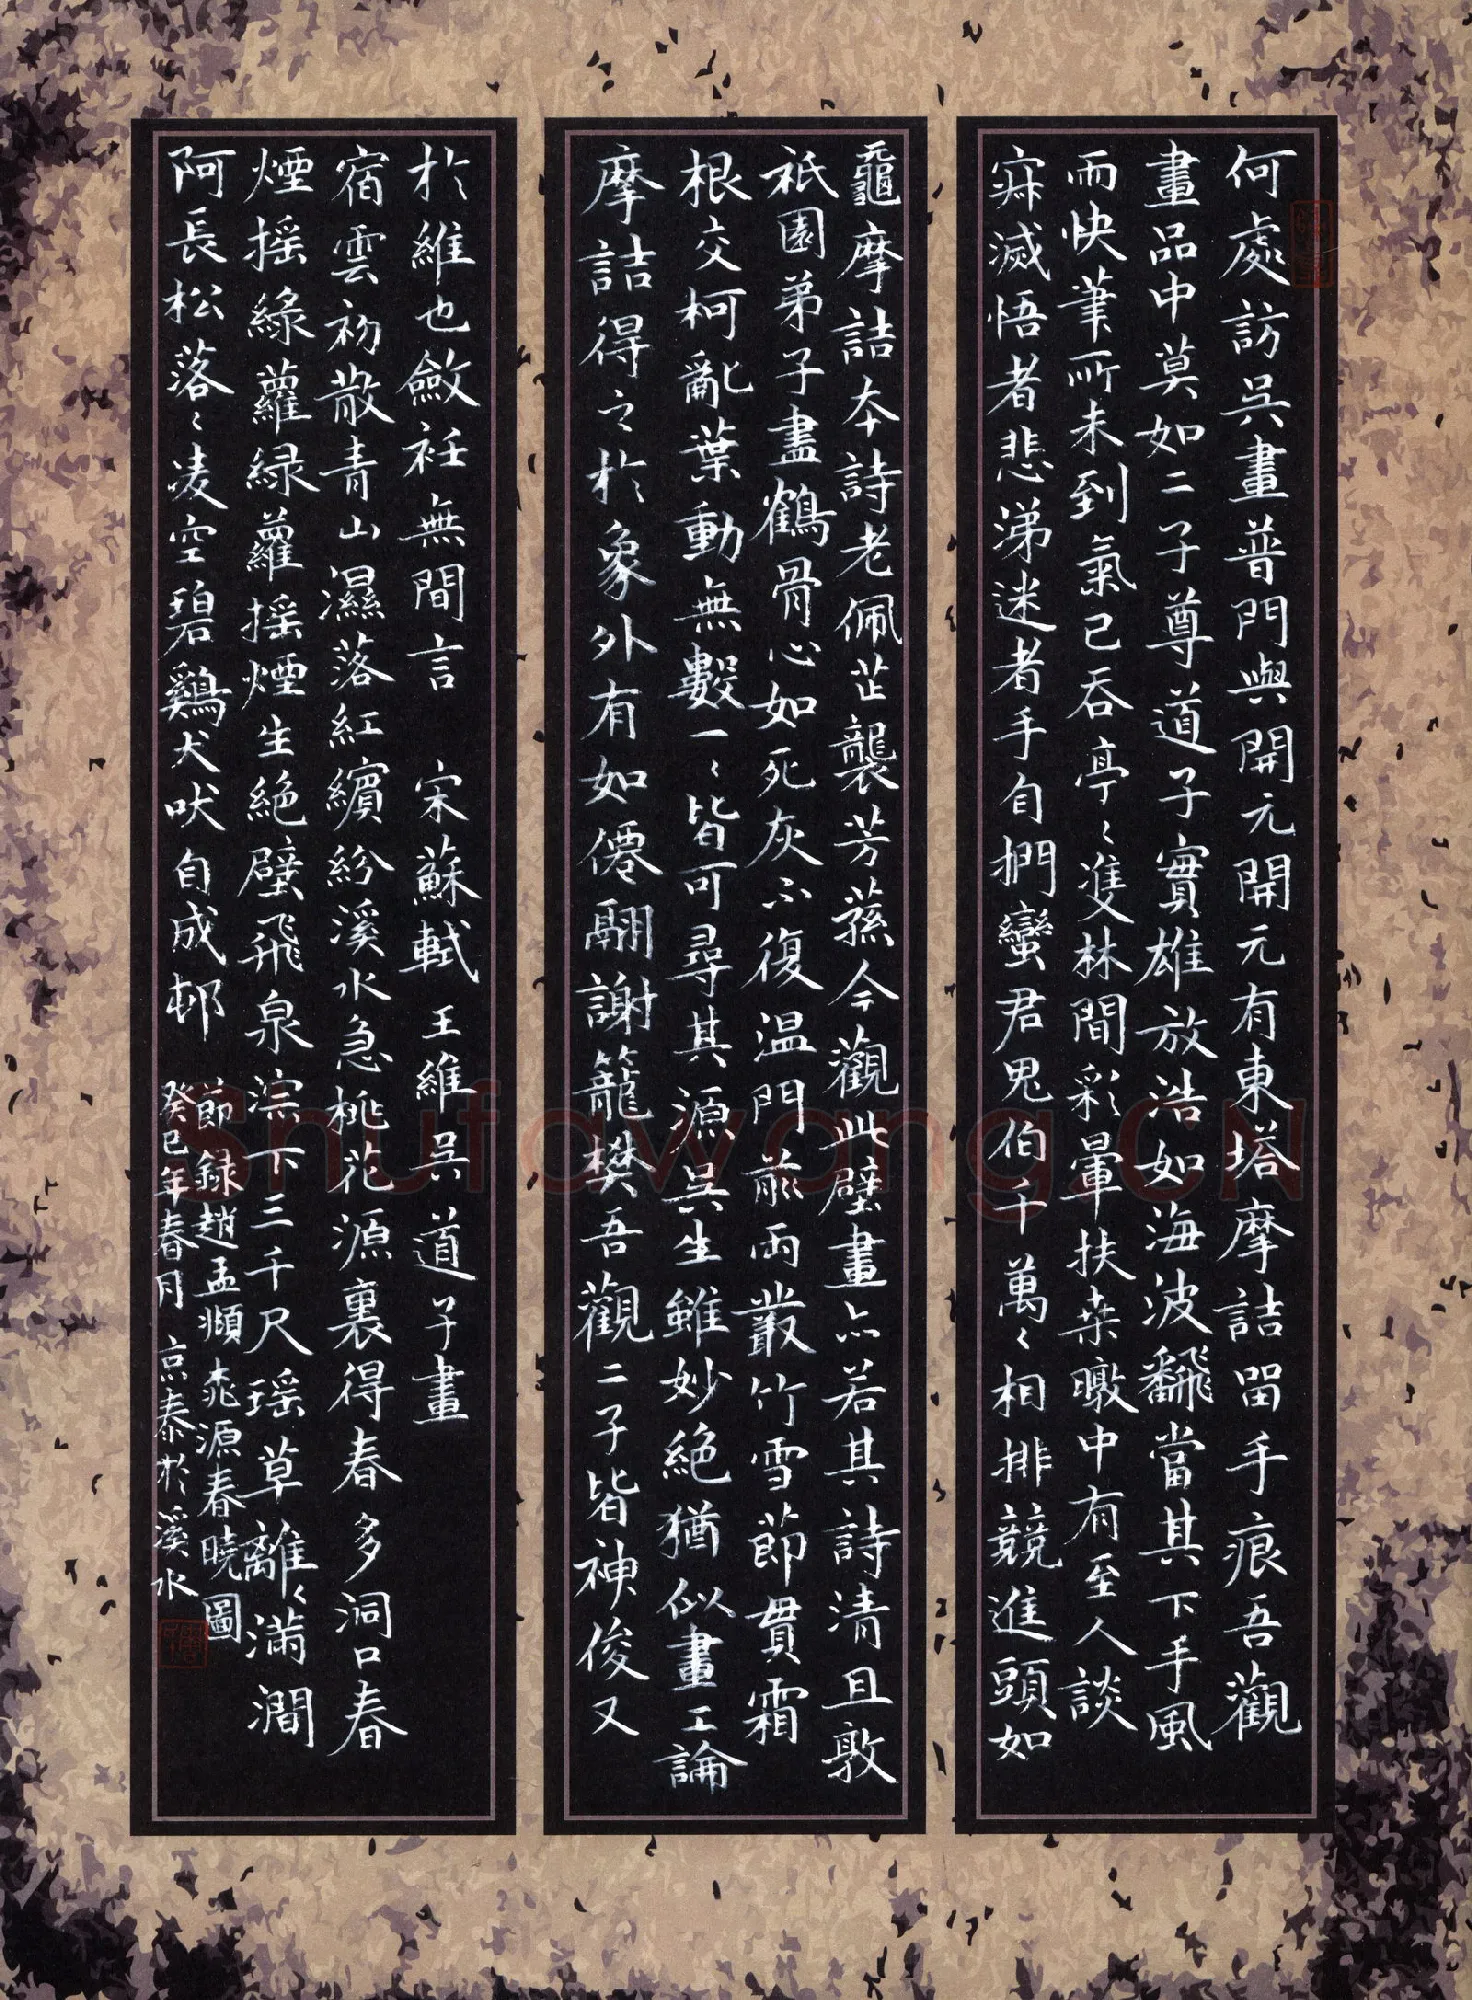 何處訪吳畫普門與開元開元有東塔摩詰留手痕吾觀
畫品中莫如二子尊道子實雄放浩如海波翻當其下手風
雨快筆所未到氣已吞亭〻雙林間彩暈扶桑暾中有至人談
寂滅悟者悲涕迷者手自捫蠻君鬼伯千萬〻相排競進頭如
黿摩詰本詩老佩芷襲芳蓀今觀此壁畫亦若其詩清且敦
祇園弟子盡鶴骨心如死灰不復溫門前兩叢竹雪節貫霜
根交柯亂葉動無數一〻皆可尋其源吳生雖妙絕猶似畫工論
摩詰得之於象外有如僊翮謝籠樊吾觀二子皆神俊又
於維也斂衽無間言 宋蘇軾王維吳道子畫
宿雲初散青山濕落紅繽紛溪水急桃花源裏得春多洞口春
煙搖綠蘿綠蘿搖煙生絕壁飛泉淙下三千尺瑤草離〻滿澗
阿長松落〻凌空碧鷄犬吠自成邨
節錄趙孟頫桃源春曉圖
癸巳年春月京泰於溪水
Shufawang.CN